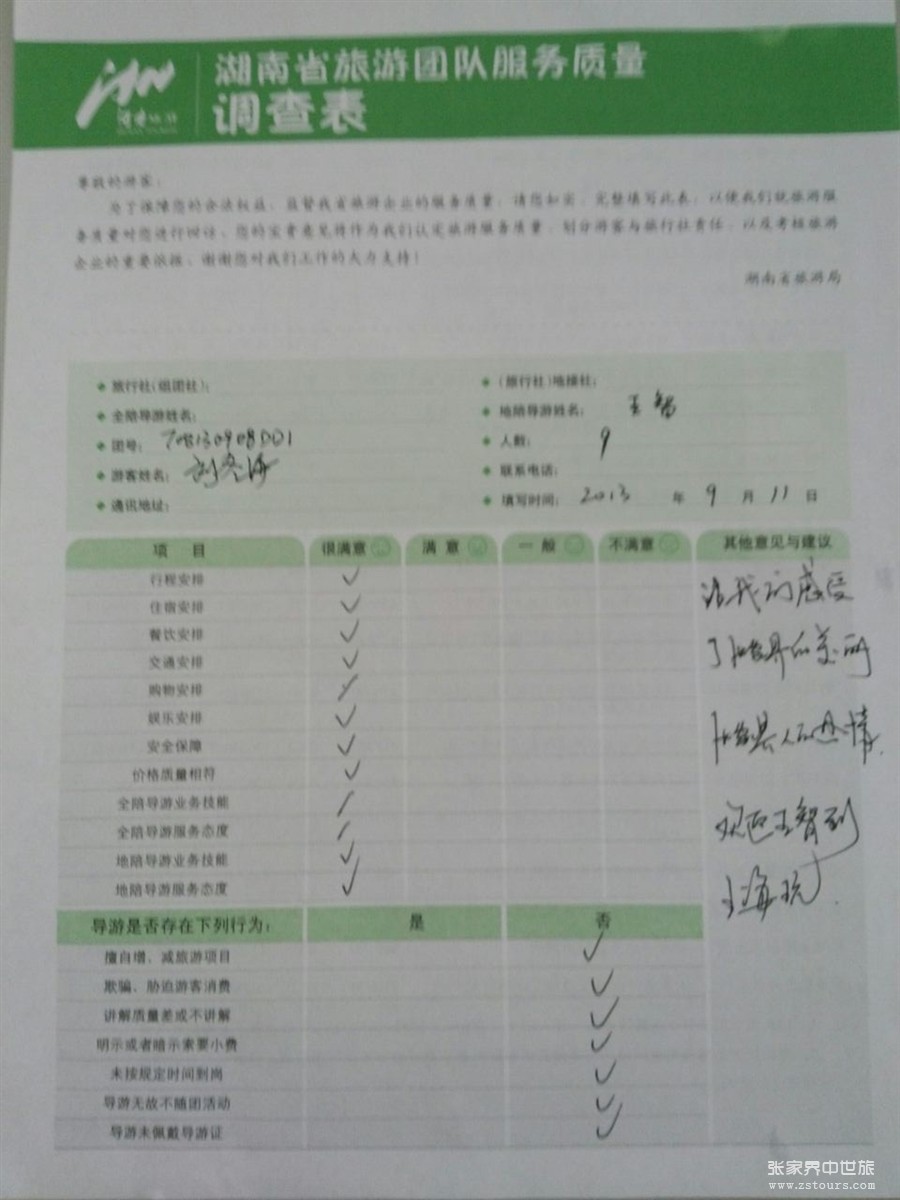 湖南省旅游团队服务质量
调查表
尊敬的游客：
为了保障您的合法权益，监督我省旅游企业的服务质量，请您如实、完整填写此表，以便我们就旅游服
务质量对您进行回访。您的宝贵意见将作为我们认定旅游服务质量、划分游客与旅行社责任、以及考核旅游
企业的重要依据。谢谢您对我们工作的大力支持！
湖南省旅游局
旅行社(组团社)：
(旅行社)地接社：
全陪导游姓名：
地陪导游姓名： 王智
团号：
人数： 9
游客姓名：
联系电话：
通讯地址：
填写时间： 2013 年 9 月 11 日
项 目 很满意 满 意 一 般 不满意 其他意见与建议
行程安排 ✓
住宿安排 ✓
餐饮安排 ✓
交通安排 ✓
购物安排
娱乐安排 ✓
安全保障 ✓
价格质量相符 ✓
全陪导游业务技能
全陪导游服务态度
地陪导游业务技能 ✓
地陪导游服务态度 ✓
我的感受
了 界的美丽
人的热情
欢迎王智到
上海玩
导游是否存在下列行为： 是 否
擅自增、减旅游项目 ✓
欺骗、胁迫游客消费 ✓
讲解质量差或不讲解 ✓
明示或者暗示索要小费 ✓
未按规定时间到岗 ✓
导游无故不随团活动 ✓
导游未佩戴导游证 ✓
张家界中世旅
www.zstours.com